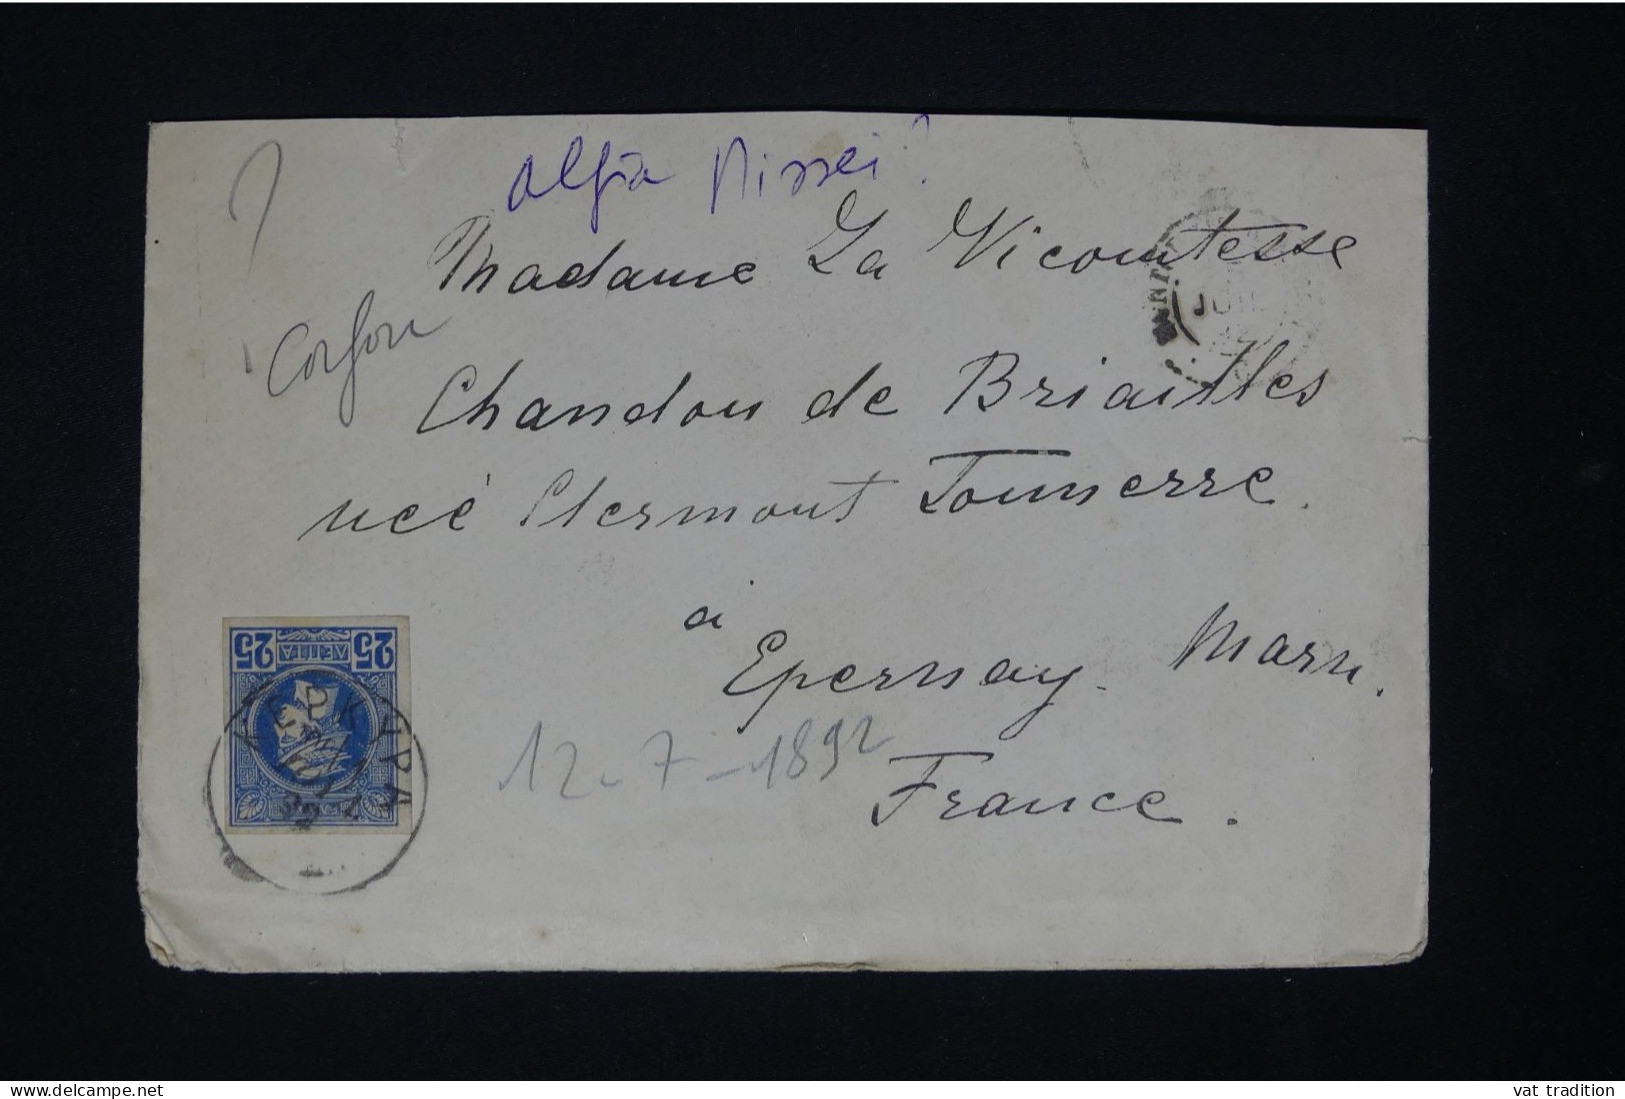 Alfia Missei ?
Madame La Vicomtesse
Corfou
Chandon de Briailles
neé Clermont Tonnerre.
à
Epernay. Marne.
12-7-1892
France.
25 25
ΛΕΠΤΑ
ΚΕΡΚΥΡΑ
92
JUIL
www.delcampe.net
vat tradition